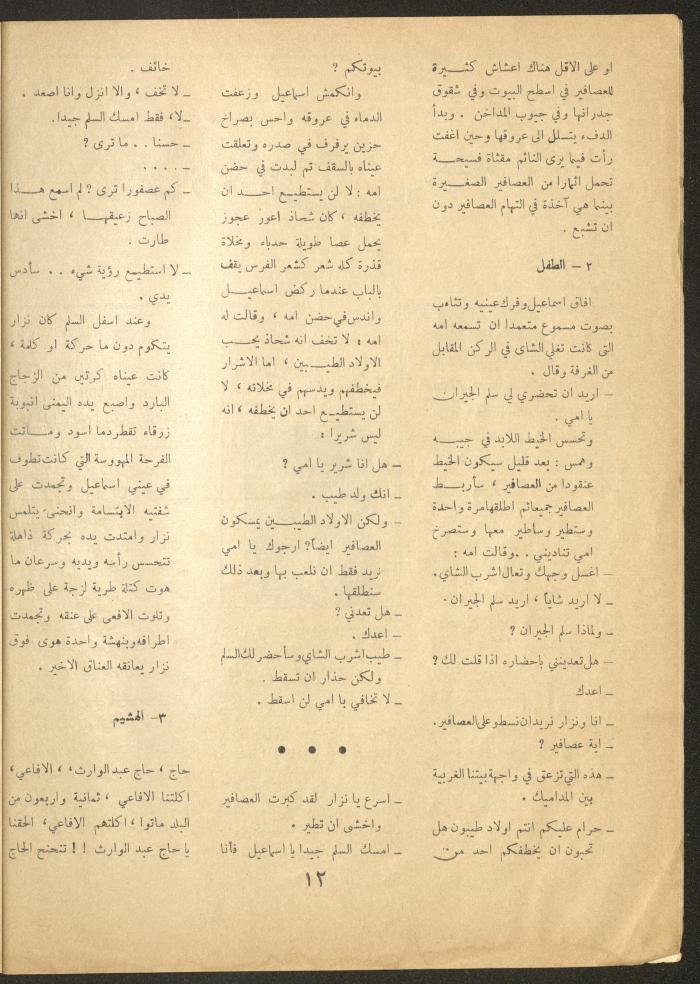 او على الاقل هناك اعشاش كثيرة
للعصافير في اسطح البيوت وفي شقوق
جدرانها وفي جيوب المداخن . وبدأ
الدفء يتسلل الى عروقها وحين اغفت
رأت فيما يرى النائم مقثاة فسيحة
تحمل اثمارا من العصافير الصغيرة
بينما هي آخذة في التهام العصافير دون
ان تشبع .
٢ – الطفل
افاق اسماعيل وفرك عينيه وتثاءب
بصوت مسموع متعمدا ان تسمعه امه
التي كانت تغلي الشاي في الركن المقابل
من الغرفة وقال .
– اريد ان تحضري لي سلم الجيران
يا امي .
وتحسس الخيط اللابد في جيبه
وهمس : بعد قليل سيكون الخيط
عنقودا من العصافير ، سأربط
العصافير جميعا ثم اطلقها مرة واحدة
وستطير وساطير معها وستصرخ
امي تناديني . . وقالت امه :
– اغسل وجهك وتعال اشرب الشاي.
– لا اريد شايا ، اريد سلم الجيران .
– ولماذا سلم الجيران ؟
– هل تعدينني باحضاره اذا قلت لك ؟
– اعدك
– انا ونزار نريد ان نسطو على العصافير.
– اية عصافير ؟
– هذه التي تزعق في واجهة بيتنا الغربية
بين المداميك .
– حرام عليكم انتم اولاد طيبون هل
تحبون ان يخطفكم احد من
بيوتكم ؟
وانكمش اسماعيل وزعفت
الدماء في عروقه واحس بصراخ
حزين يرفرف في صدره وتعلقت
عيناه بالسقف ثم لبدت في حضن
امه : لا لن يستطيع احد ان
يخطفه ، كان شحاذ اعور عجوز
يحمل عصا طويلة حدباء ومخلاة
قذرة كله شعر كشعر الفرس يقف
بالباب عندما ركض اسماعيل
واندس في حضن امه ، وقالت له
امه : لا تخف انه شحاذ يحب
الاولاد الطيبين ، اما الاشرار
فيخطفهم ويدسهم في مخلاته ، لا
لن يستطيع احد ان يخطفه ، انه
ليس شريرا :
– هل انا شرير يا امي ؟
– انك ولد طيب .
– ولكن الاولاد الطيبين يمسكون
العصافير ايضا؟ ارجوك يا امي
نريد فقط ان نلعب بها وبعد ذلك
سنطلقها .
– هل تعدني ؟
– اعدك .
– طيب اشرب الشاي وسأحضر لك السلم
ولكن حذار ان تسقط .
– لا تخافي يا امي لن اسقط .
● ● ●
– اسرع يا نزار لقد كبرت العصافير
واخشى ان تطير .
– امسك السلم جيدا يا اسماعيل فأنا
خائف .
– لا تخف ، والا انزل وانا اصعد .
– لا، فقط امسك السلم جيدا.
– حسنا . . ما ترى ؟
– . . . .
– كم عصفورا ترى ؟ لم اسمع هذا
الصباح زعيقها ، اخشى انها
طارت .
– لا استطيع رؤية شيء . . سأدس
يدي .
وعند اسفل السلم كان نزار
يتكوم دون ما حركة او كلمة ،
كانت عيناه كرتين من الزجاج
البارد واصبع يده اليمنى انبوبة
زرقاء تقطر دما اسود وماتت
الفرحة المهووسة التي كانت تطوف
في عيني اسماعيل وتجمدت على
شفتيه الابتسامة وانحنى يتلمس
نزار وامتدت يده بحركة ذاهلة
تتحسس رأسه ويديه وسرعان ما
هوت كتلة طرية لزجة على ظهره
وتلوت الافعى على عنقه وتجمدت
اطرافه وبنهشة واحدة هوى فوق
نزار يعانقه العناق الاخير .
٣– الهشيم
حاج ، حاج عبد الوارث، ، الافاعي،
اكلتنا الافاعي ، ثمانية واربعون من
البلد ماتوا ، اكلتهم الافاعي، الحقنا
يا حاج عبد الوارث ! ! تنحنح الحاج
١٢